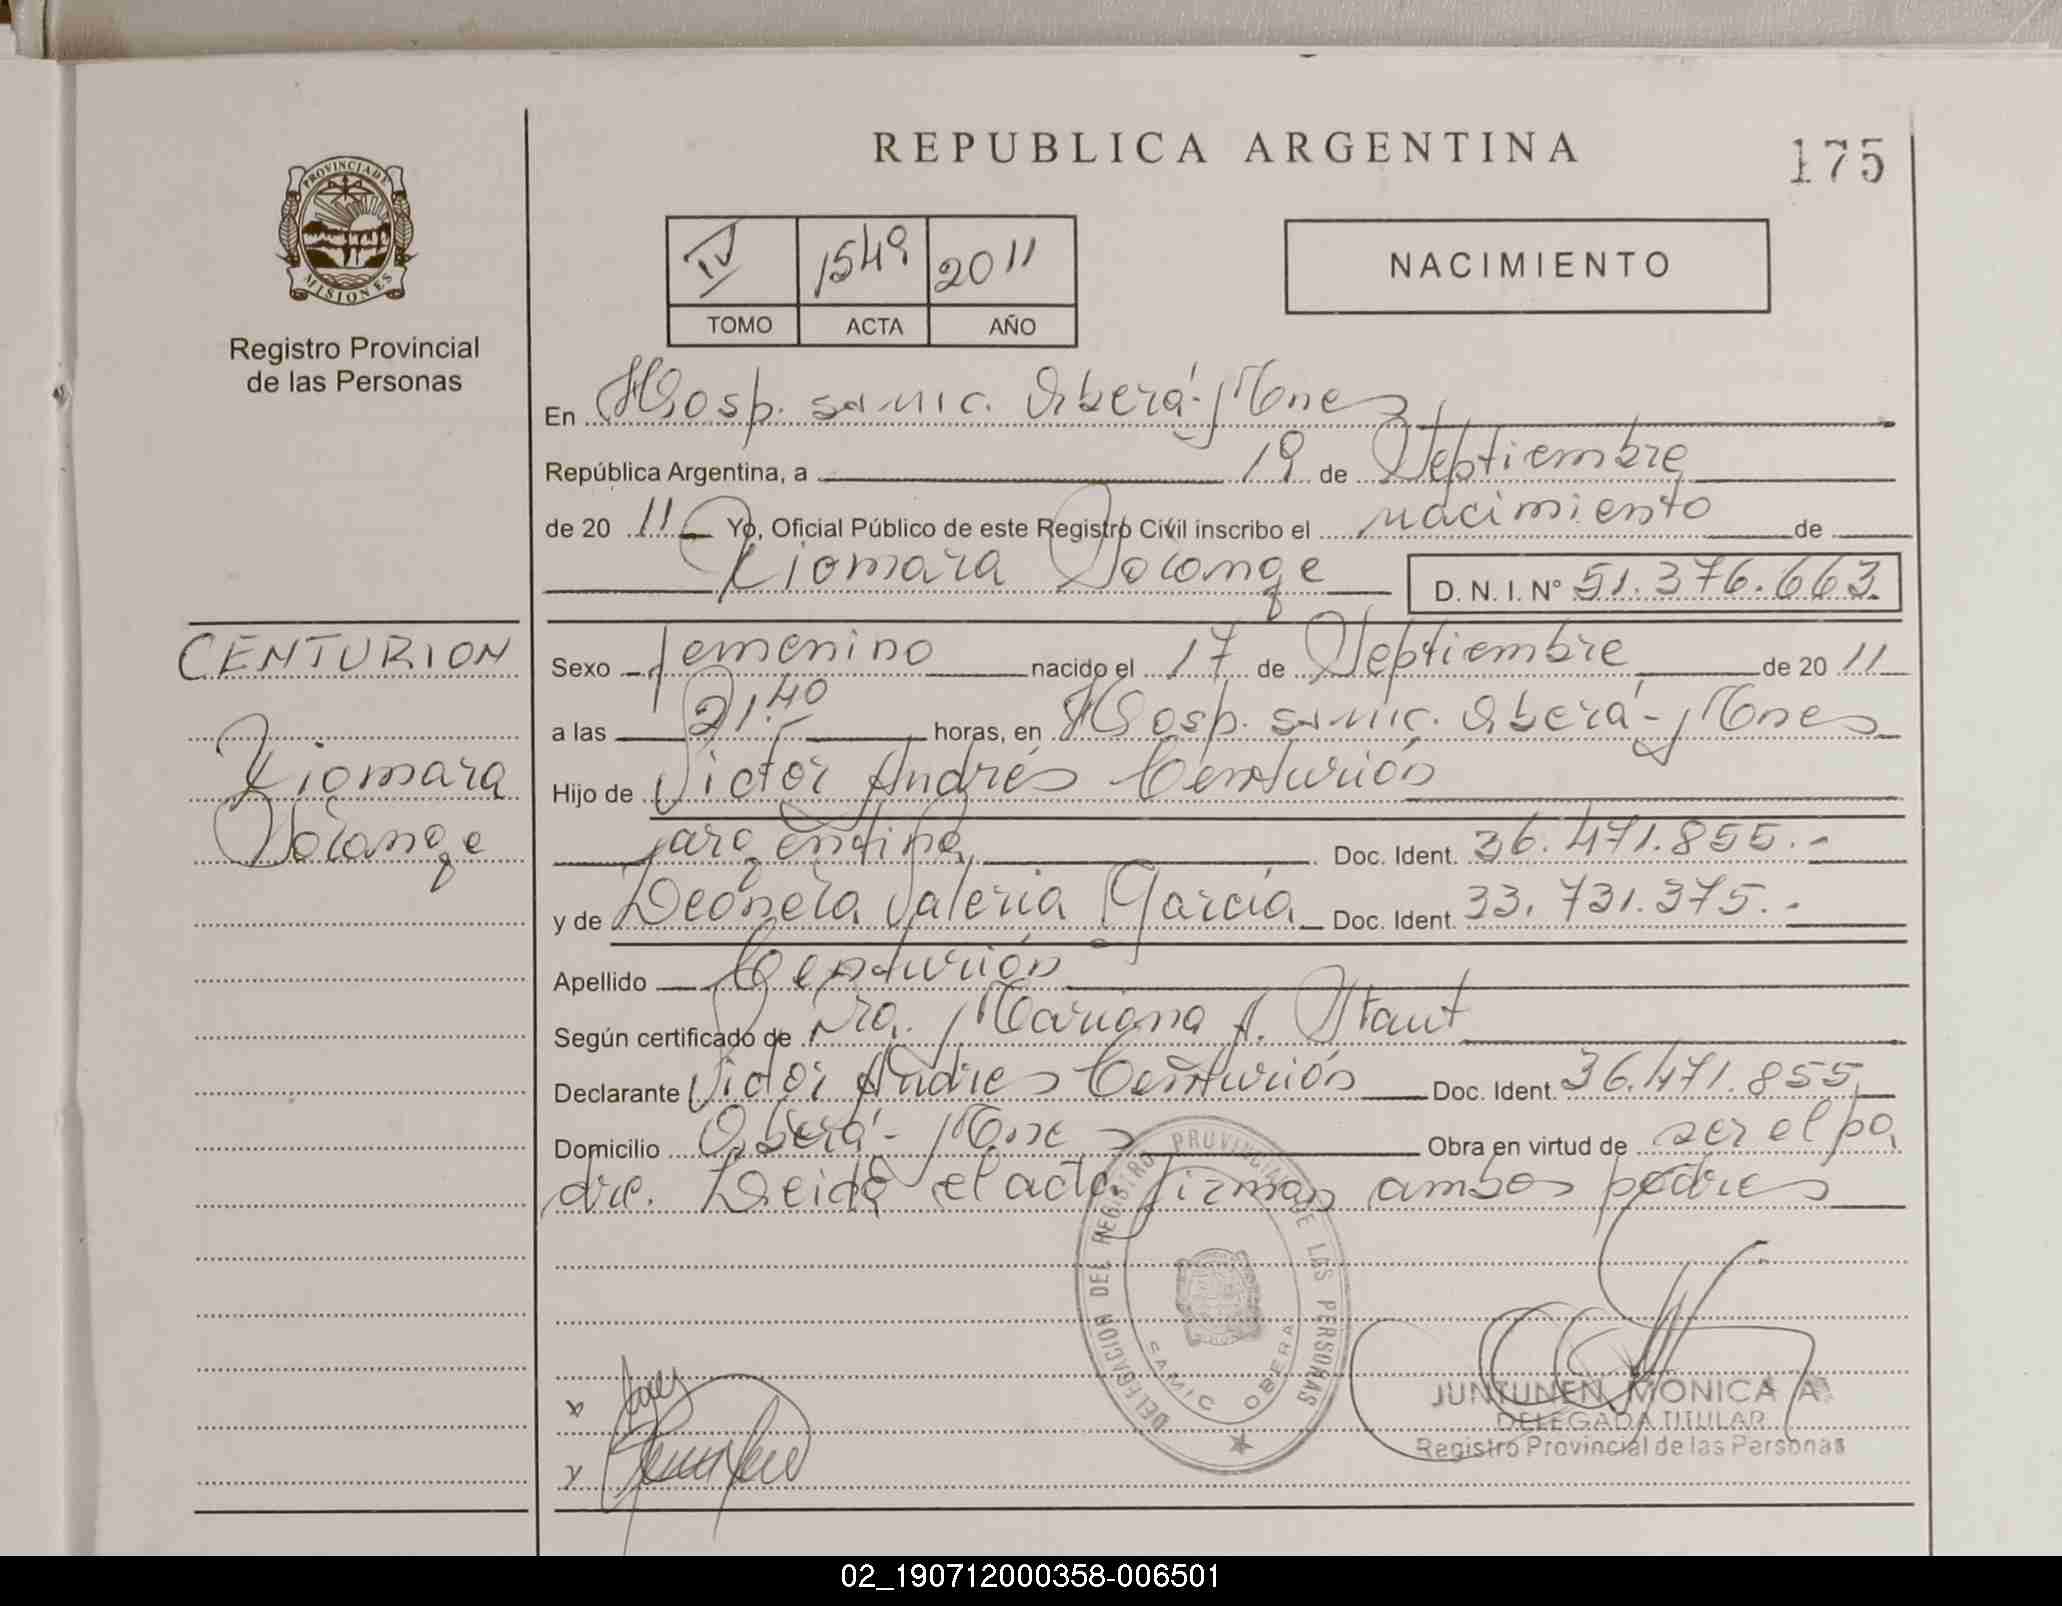 REPUBLICA ARGENTINA
175
PROVINCIA DE
MISIONES
Registro Provincial
de las Personas
IV 1549 2011
TOMO ACTA AÑO
NACIMIENTO
En Hosp. samic. Oberá - Mnes
República Argentina, a 19 de Septiembre
de 20 11 Yo, Oficial Público de este Registro Civil inscribo el nacimiento de
Xiomara Solange D. N. I. N° 51.376.663.
CENTURION
Xiomara
Solange
Sexo femenino nacido el 17 de Septiembre de 20 11
a las 21.40 horas, en Hosp. samic. Oberá - Mnes
Hijo de Victor Andrés Centurión
argentina Doc. Ident. 36.471.855.-
y de Leonela Valeria García Doc. Ident. 33.731.375.-
Apellido Centurión
Según certificado de Dra. Mariana A. Staut
Declarante Victor Andres Centurión Doc. Ident. 36.471.855
Domicilio Oberá - Mnes Obra en virtud de ser el pa
dre. Leida el acta firman ambos padres
DELEGACION DEL REGISTRO PROVINCIAL DE LAS PERSONAS
SAMIC OBERA
JUNTUNEN MONICA A
DELEGADA TITULAR
Registro Provincial de las Personas
02_190712000358-006501